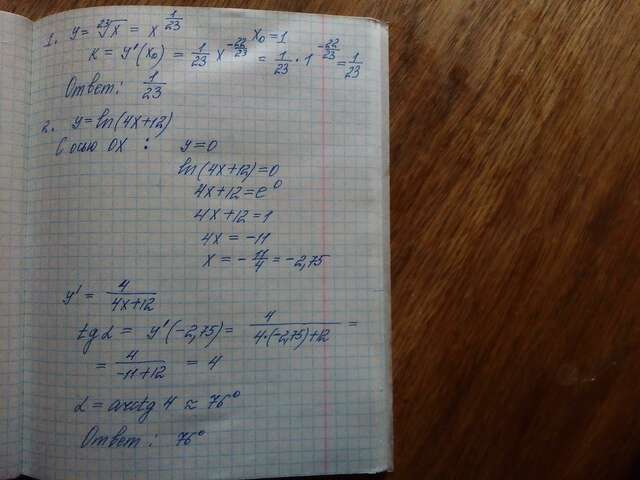 1. y = ²³√x = x^(1/23)   x₀ = 1
к = y'(x₀) = 1/23 x^(-22/23) = 1/23 · 1^(-22/23) = 1/23
Ответ: 1/23
2. y = ln(4x+12)
С осью OX : y=0
ln(4x+12)=0
4x+12=e⁰
4x+12=1
4x = -11
x = -11/4 = -2,75
y' = 4/(4x+12)
tg α = y'(-2,75) = 4/(4·(-2,75)+12) =
= 4/(-11+12) = 4
α = arctg 4 ≈ 76°
Ответ: 76°